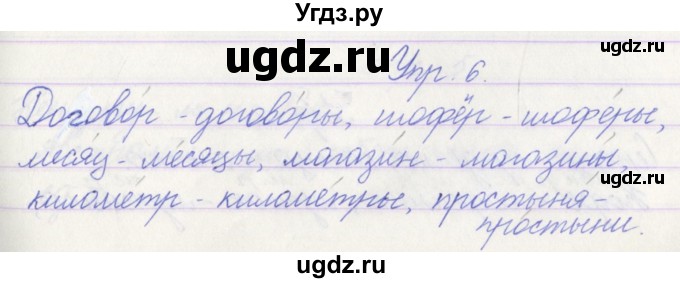 Угдз.ру
ugdz.ru
Упр. 6.
Догово́р - догово́ры, шофёр - шофёры,
ме́сяц - ме́сяцы, магази́н - магази́ны,
киломе́тр - киломе́тры, простыня́ -
про́стыни.
ugdz.ru
ugdz.ru